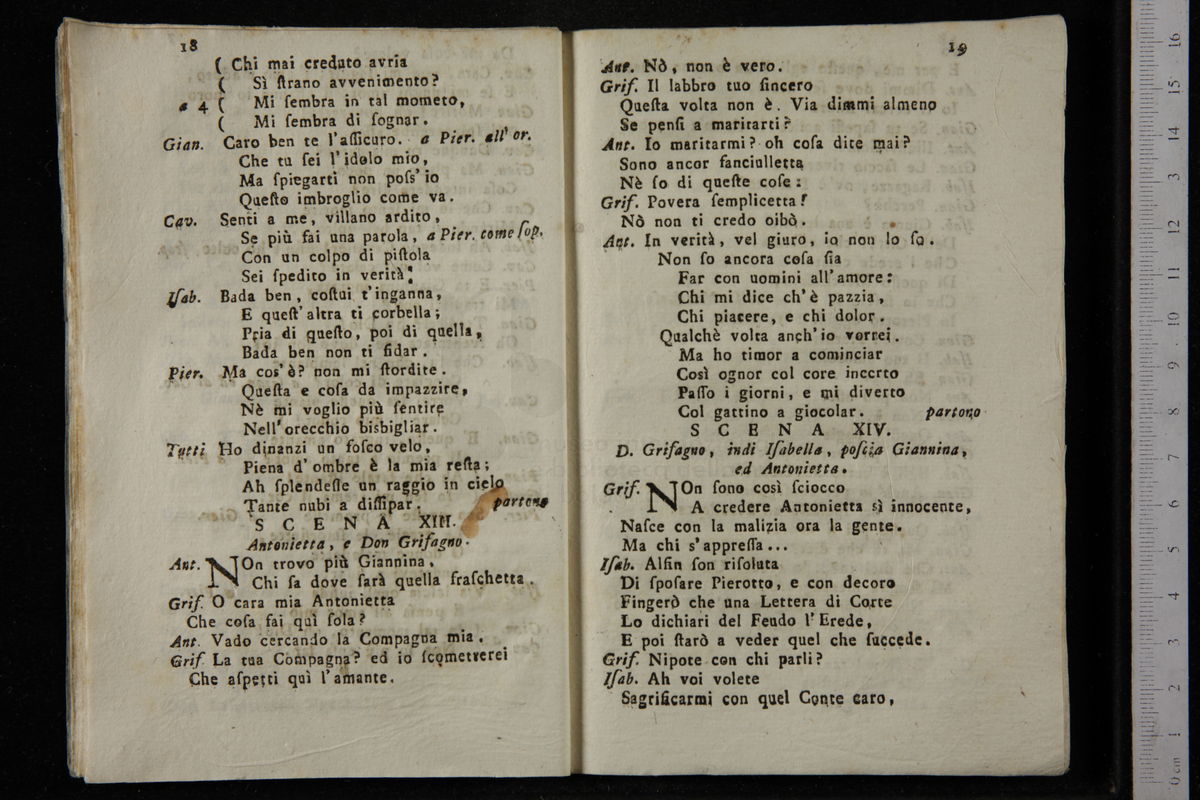 18
( Chi mai creduto avria
( Sì ſtrano avvenimento?
a 4 ( Mi ſembra in tal mometo,
( Mi ſembra di ſognar.
Gian. Caro ben te l'aſſicuro. a Pier. all' or.
Che tu ſei l'idolo mio,
Ma ſpiegarti non poſs' io
Queſto imbroglio come va.
Cav. Senti a me, villano ardito,
Se più fai una parola, a Pier. come ſop.
Con un colpo di piſtola
Sei ſpedito in verità:
Iſab. Bada ben, coſtui t'inganna,
E queſt' altra ti corbella;
Pria di queſto, poi di quella,
Bada ben non ti fidar.
Pier. Ma cos' è? non mi ſtordite.
Queſta e coſa da impazzire,
Nè mi voglio più ſentire
Nell' orecchio bisbigliar.
Tutti Ho dinanzi un foſco velo,
Piena d' ombre è la mia teſta;
Ah ſplendeſſe un raggio in cielo
Tante nubi a diſſipar. partono
S C E N A XIII.
Antonietta, e Don Grifagno.
Ant. NOn trovo più Giannina,
Chi ſa dove ſarà quella fraſchetta.
Grif. O cara mia Antonietta
Che coſa fai quì ſola?
Ant. Vado cercando la Compagna mia.
Grif. La tua Compagna? ed io ſcometterei
Che aſpetti quì l'amante.
19
Ant. Nò, non è vero.
Grif. Il labbro tuo ſincero
Queſta volta non è. Via dimmi almeno
Se penſi a maritarti?
Ant. Io maritarmi? oh coſa dite mai?
Sono ancor fanciulletta
Nè ſo di queſte coſe:
Grif. Povera ſemplicetta!
Nò non ti credo oibò.
Ant. In verità, vel giuro, io non lo ſo.
Non ſo ancora coſa ſia
Far con uomini all' amore:
Chi mi dice ch' è pazzia,
Chi piacere, e chi dolor.
Qualchè volta anch' io vorrei.
Ma ho timor a cominciar
Così ognor col core incerto
Paſſo i giorni, e mi diverto
Col gattino a giocolar. partono
S C E N A XIV.
D. Grifagno, indi Iſabella, poſcia Giannina,
ed Antonietta.
Grif. NOn ſono così ſciocco
A credere Antonietta sì innocente,
Naſce con la malizia ora la gente.
Ma chi s' appreſſa...
Iſab. Alfin ſon riſoluta
Di ſpoſare Pierotto, e con decoro
Fingerò che una Lettera di Corte
Lo dichiari del Feudo l' Erede,
E poi ſtarò a veder quel che ſuccede.
Grif. Nipote con chi parli?
Iſab. Ah voi volete
Sagrificarmi con quel Conte caro,